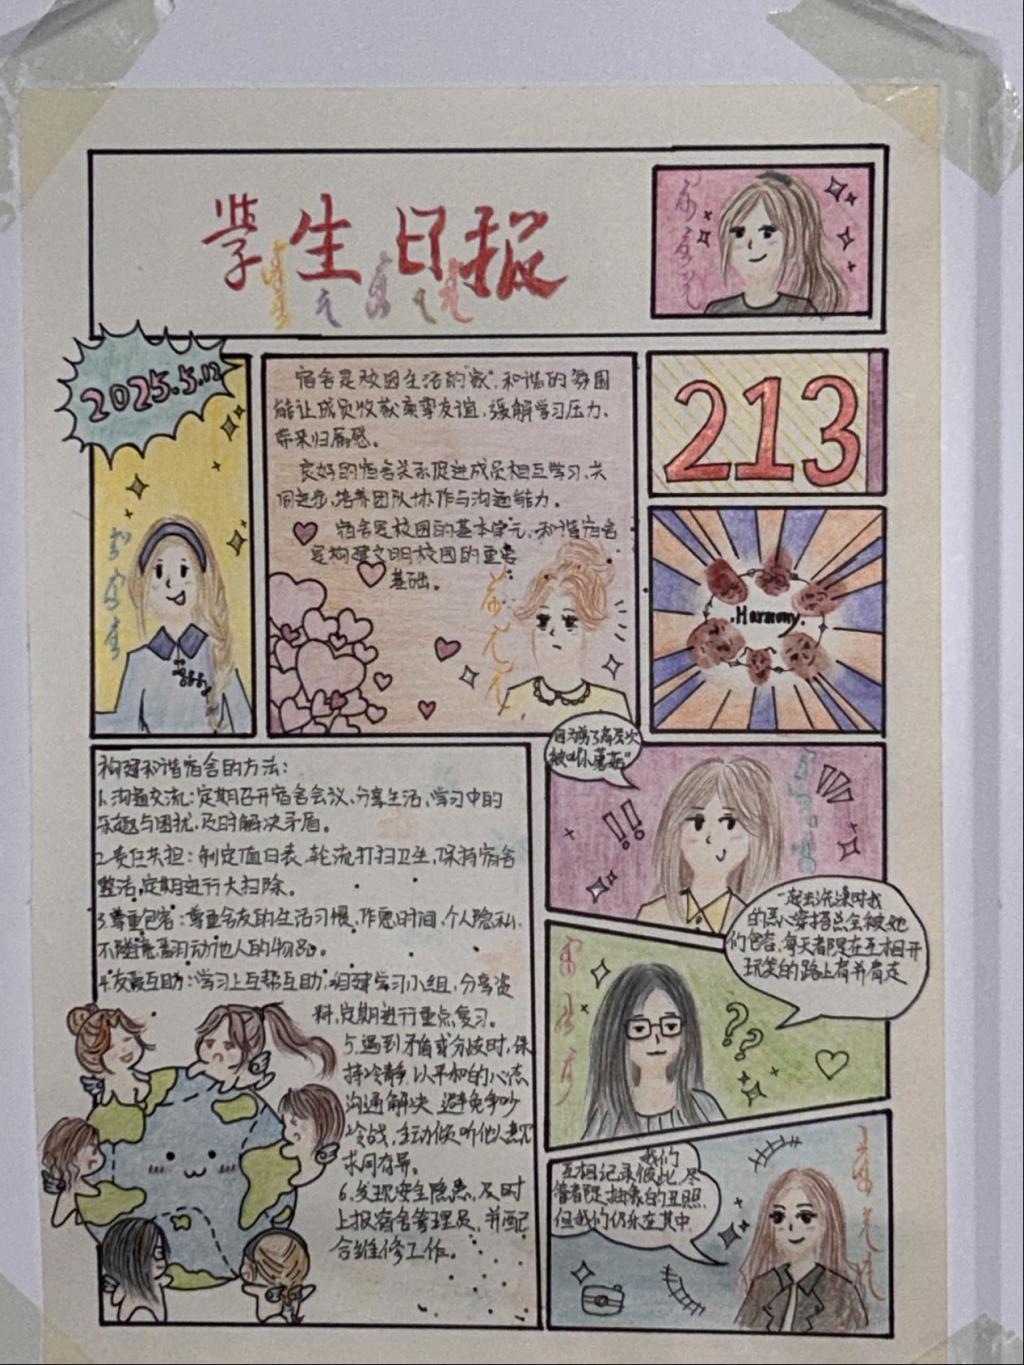 学生日报
2025.5.12
宿舍是校园生活的"家",和谐的氛围
能让成员收获真挚友谊,缓解学习压力,
带来归属感。
良好的宿舍关系促进成员相互学习、共
同进步,培养团队协作与沟通能力。
宿舍是校园的基本单元,和谐宿舍
是构建文明校园的重要
基础。
213
.Harmony.
构建和谐宿舍的方法:
1.沟通交流:定期召开宿舍会议、分享生活、学习中的
乐趣与困扰,及时解决矛盾。
2.责任共担:制定值日表,轮流打扫卫生,保持宿舍
整洁,定期进行大扫除。
3.尊重包容:尊重舍友的生活习惯、作息时间、个人隐私,
不随意翻动他人的物品。
4.友爱互助:学习上互帮互助,组建学习小组,分享资
料,定期进行重点复习。
5.遇到矛盾或分歧时,保
持冷静,以平和的心态
沟通解决,避免争吵
冷战,主动倾听他人意见
求同存异。
6.发现安全隐患,及时
上报宿舍管理员,并配
合维修工作。
因为剪了高层次
被叫"小蘑菇"
一起去洗澡时我
的恶心穿搭总会被她
们包容,每天都是在互相开
玩笑的路上有井有走
我们
互相记录彼此,尽
管都是抽象的丑照
但我们仍乐在其中